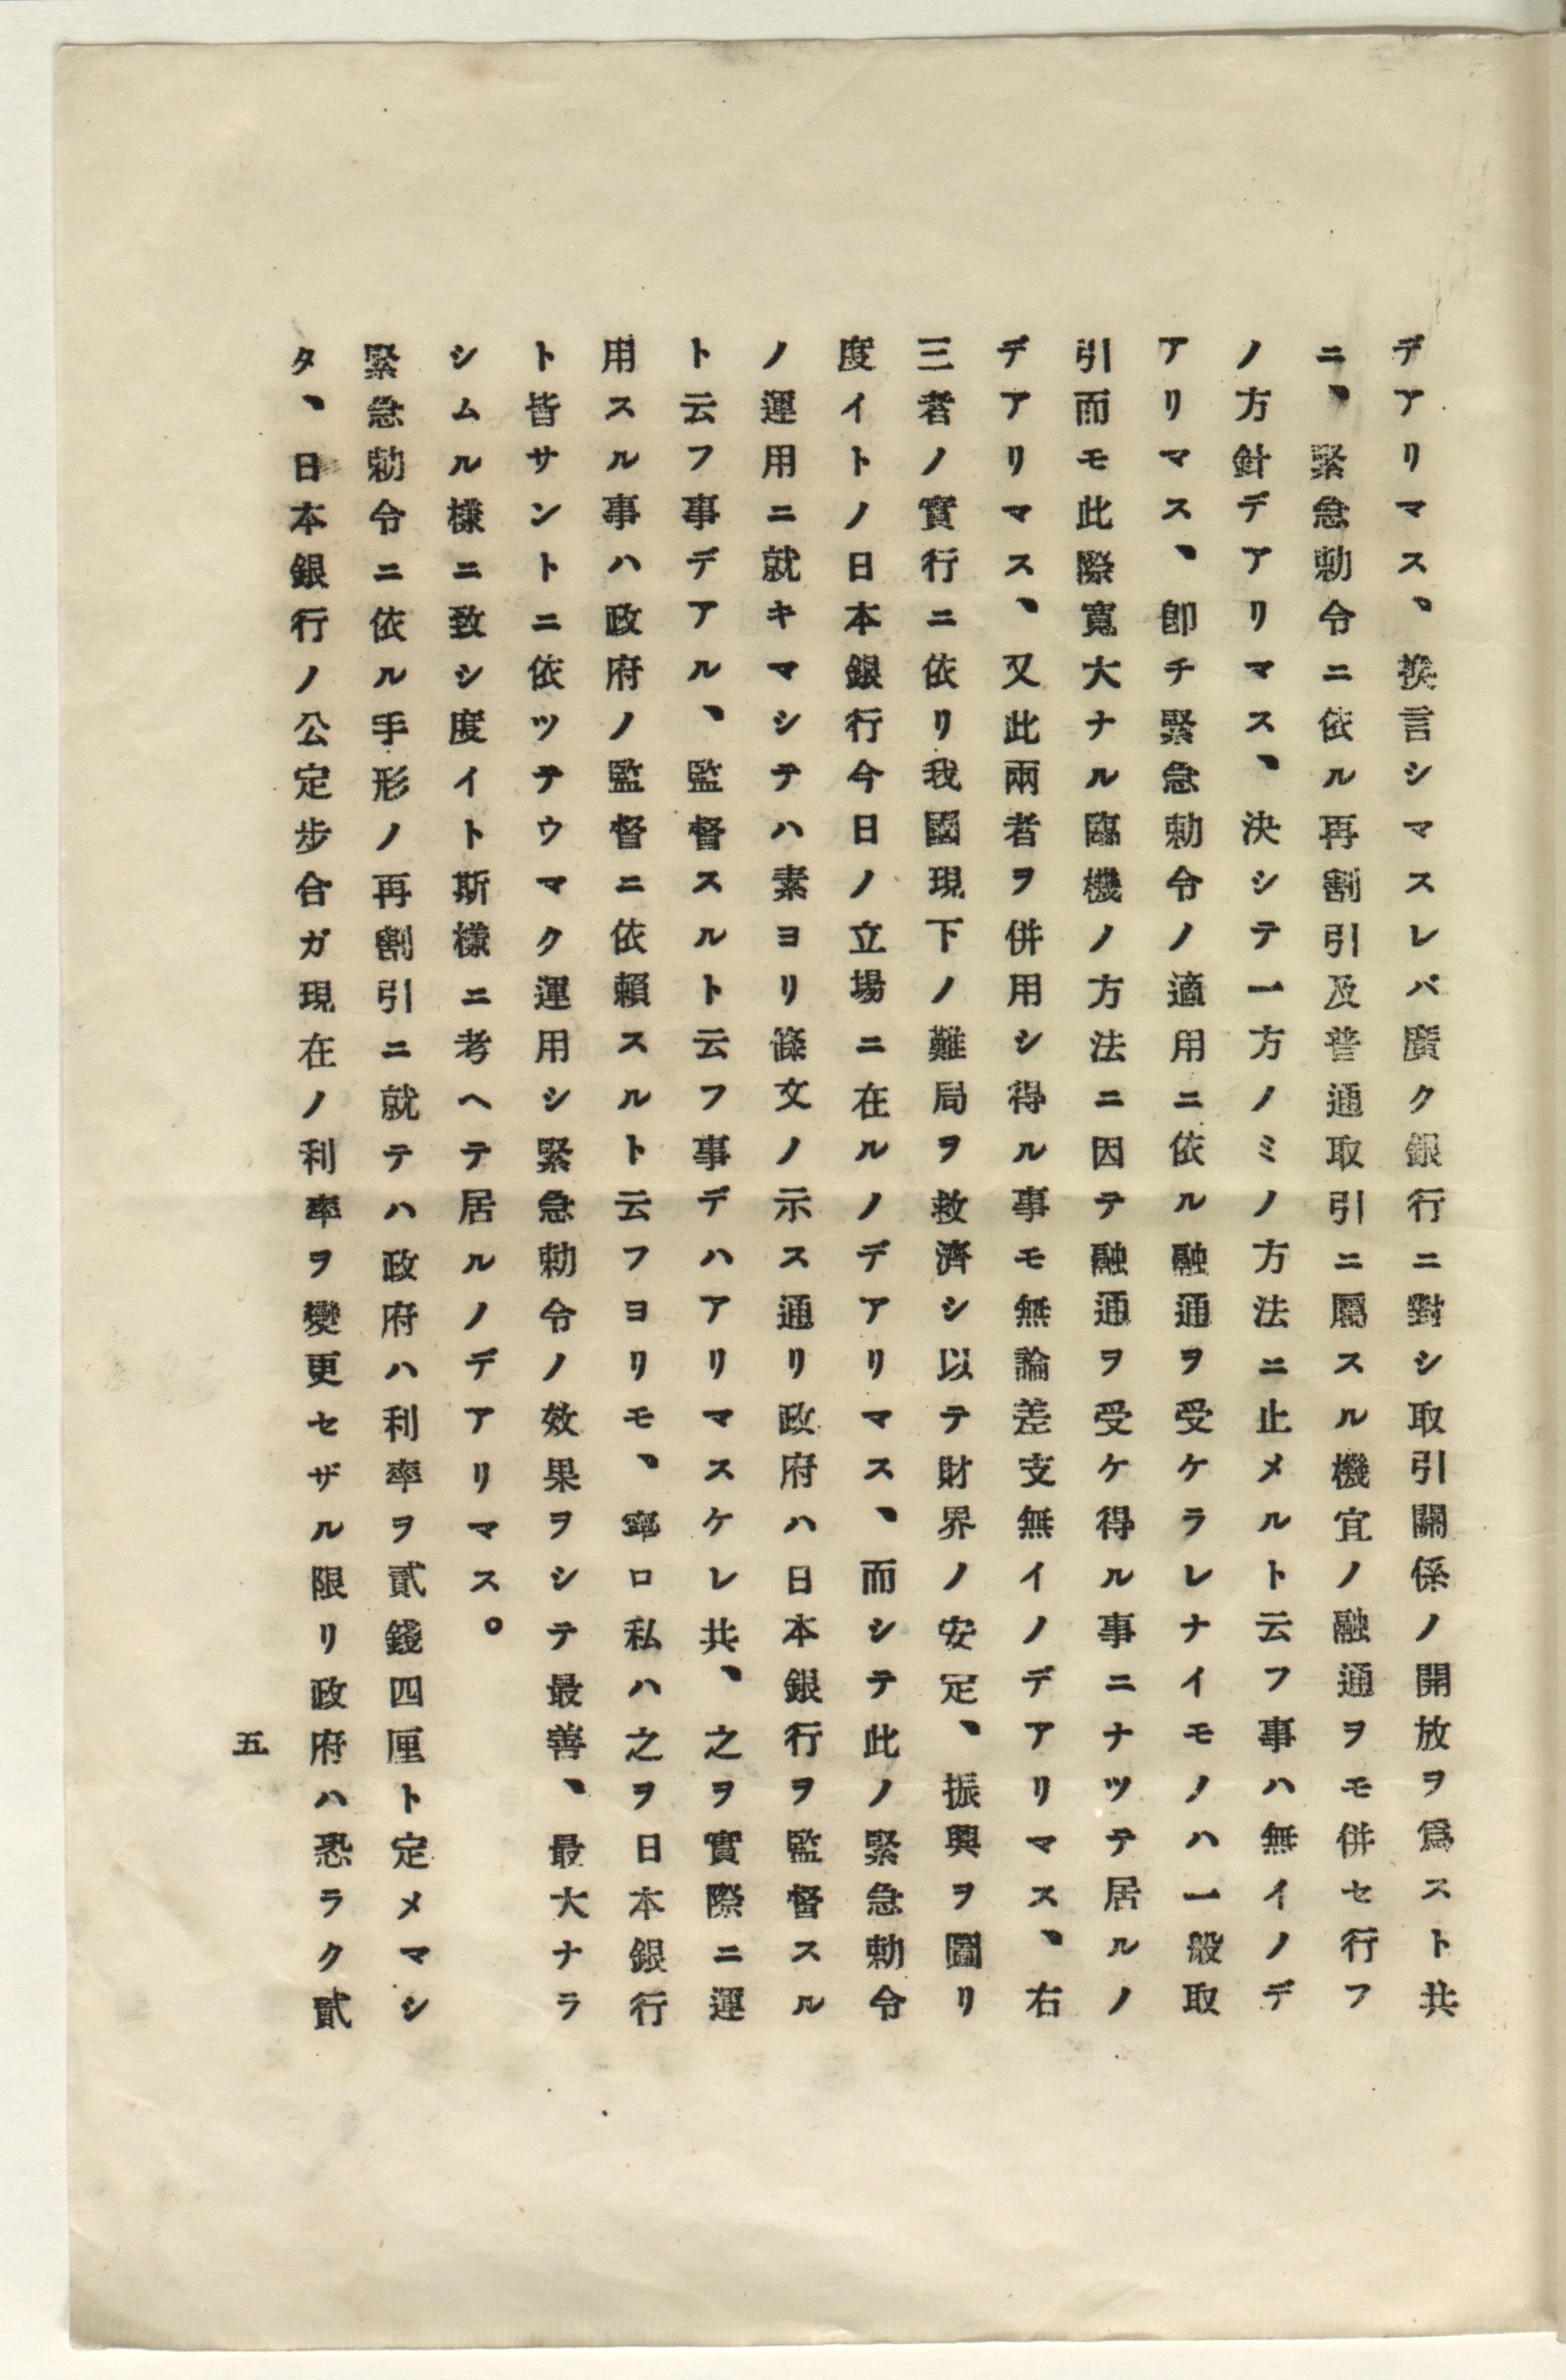 デアリマス、換言シマスレバ廣ク銀行ニ對シ取引關係ノ開放ヲ爲スト共
ニ、緊急勅令ニ依ル再割引及普通取引ニ屬スル機宜ノ融通ヲモ併セ行フ
ノ方針デアリマス、決シテ一方ノミノ方法ニ止メルト云フ事ハ無イノデ
アリマス、卽チ緊急勅令ノ適用ニ依ル融通ヲ受ケラレナイモノハ一般取
引而モ此際寬大ナル臨機ノ方法ニ因テ融通ヲ受ケ得ル事ニナツテ居ルノ
デアリマス、又此兩者ヲ併用シ得ル事モ無論差支無イノデアリマス、右
三者ノ實行ニ依リ我國現下ノ難局ヲ救濟シ以テ財界ノ安定、振興ヲ圖リ
度イトノ日本銀行今日ノ立場ニ在ルノデアリマス、而シテ此ノ緊急勅令
ノ運用ニ就キマシテハ素ヨリ條文ノ示ス通リ政府ハ日本銀行ヲ監督スル
ト云フ事デアル、監督スルト云フ事デハアリマスケレ共、之ヲ實際ニ運
用スル事ハ政府ノ監督ニ依賴スルト云フヨリモ、寧ロ私ハ之ヲ日本銀行
ト皆サントニ依ツテウマク運用シ緊急勅令ノ效果ヲシテ最善、最大ナラ
シムル樣ニ致シ度イト斯樣ニ考ヘテ居ルノデアリマス。
緊急勅令ニ依ル手形ノ再割引ニ就テハ政府ハ利率ヲ貳錢四厘ト定メマシ
タ、日本銀行ノ公定步合ガ現在ノ利率ヲ變更セザル限リ政府ハ恐ラク貳
五